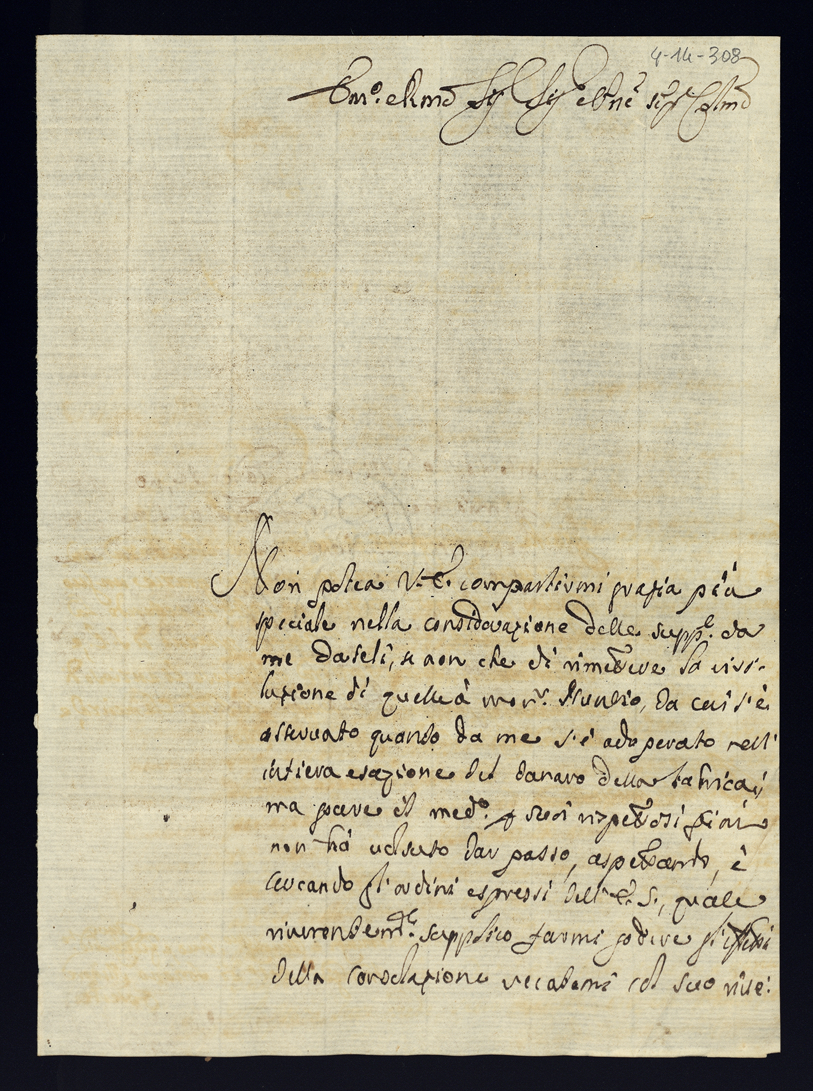 4-14-308
Em.o e Rmo Sig.r Sig.r e Pne
Non potea V. E. compartirmi grazia più
speciale nella considerazione delle supp.e da
me dateli, se non che di rimettere la riso-
luzione di quelle à mon.r Nunzio, da cui s'è
osservato quanto da me s'è adoperato nell'
intiera esazione del danaro della fabrica,
ma pare il med.o suoi rispettosi fini
non hà voluto dar passo, aspettando, è
cercando gl'ordini espressi dell'E. S., quale
riverentem.te supplico farmi godere gl'effetti
della consolazione recatami col suo rive: